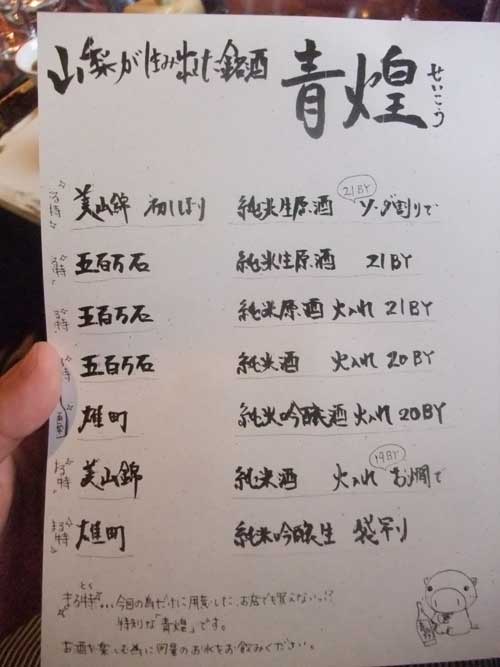 山梨が生み出した銘酒 青煌 せいこう
まる特 美山錦 初しぼり 純米生原酒 21BY ソーダ割りで
まる特 五百万石 純米生原酒 21BY
まる特 五百万石 純米原酒 火入れ 21BY
特 五百万石 純米酒 火入れ 20BY
雄町 純米吟醸酒 火入れ 20BY
まる特 美山錦 純米酒 火入れ 19BY お燗で
まる特 雄町 純米吟醸生 袋吊り
とく
まる特"... 今回の為だけに用意した、お店でも買えないっ!?
特別な「青煌」です。
お酒を楽しむ為に同量のお水をお飲みください。